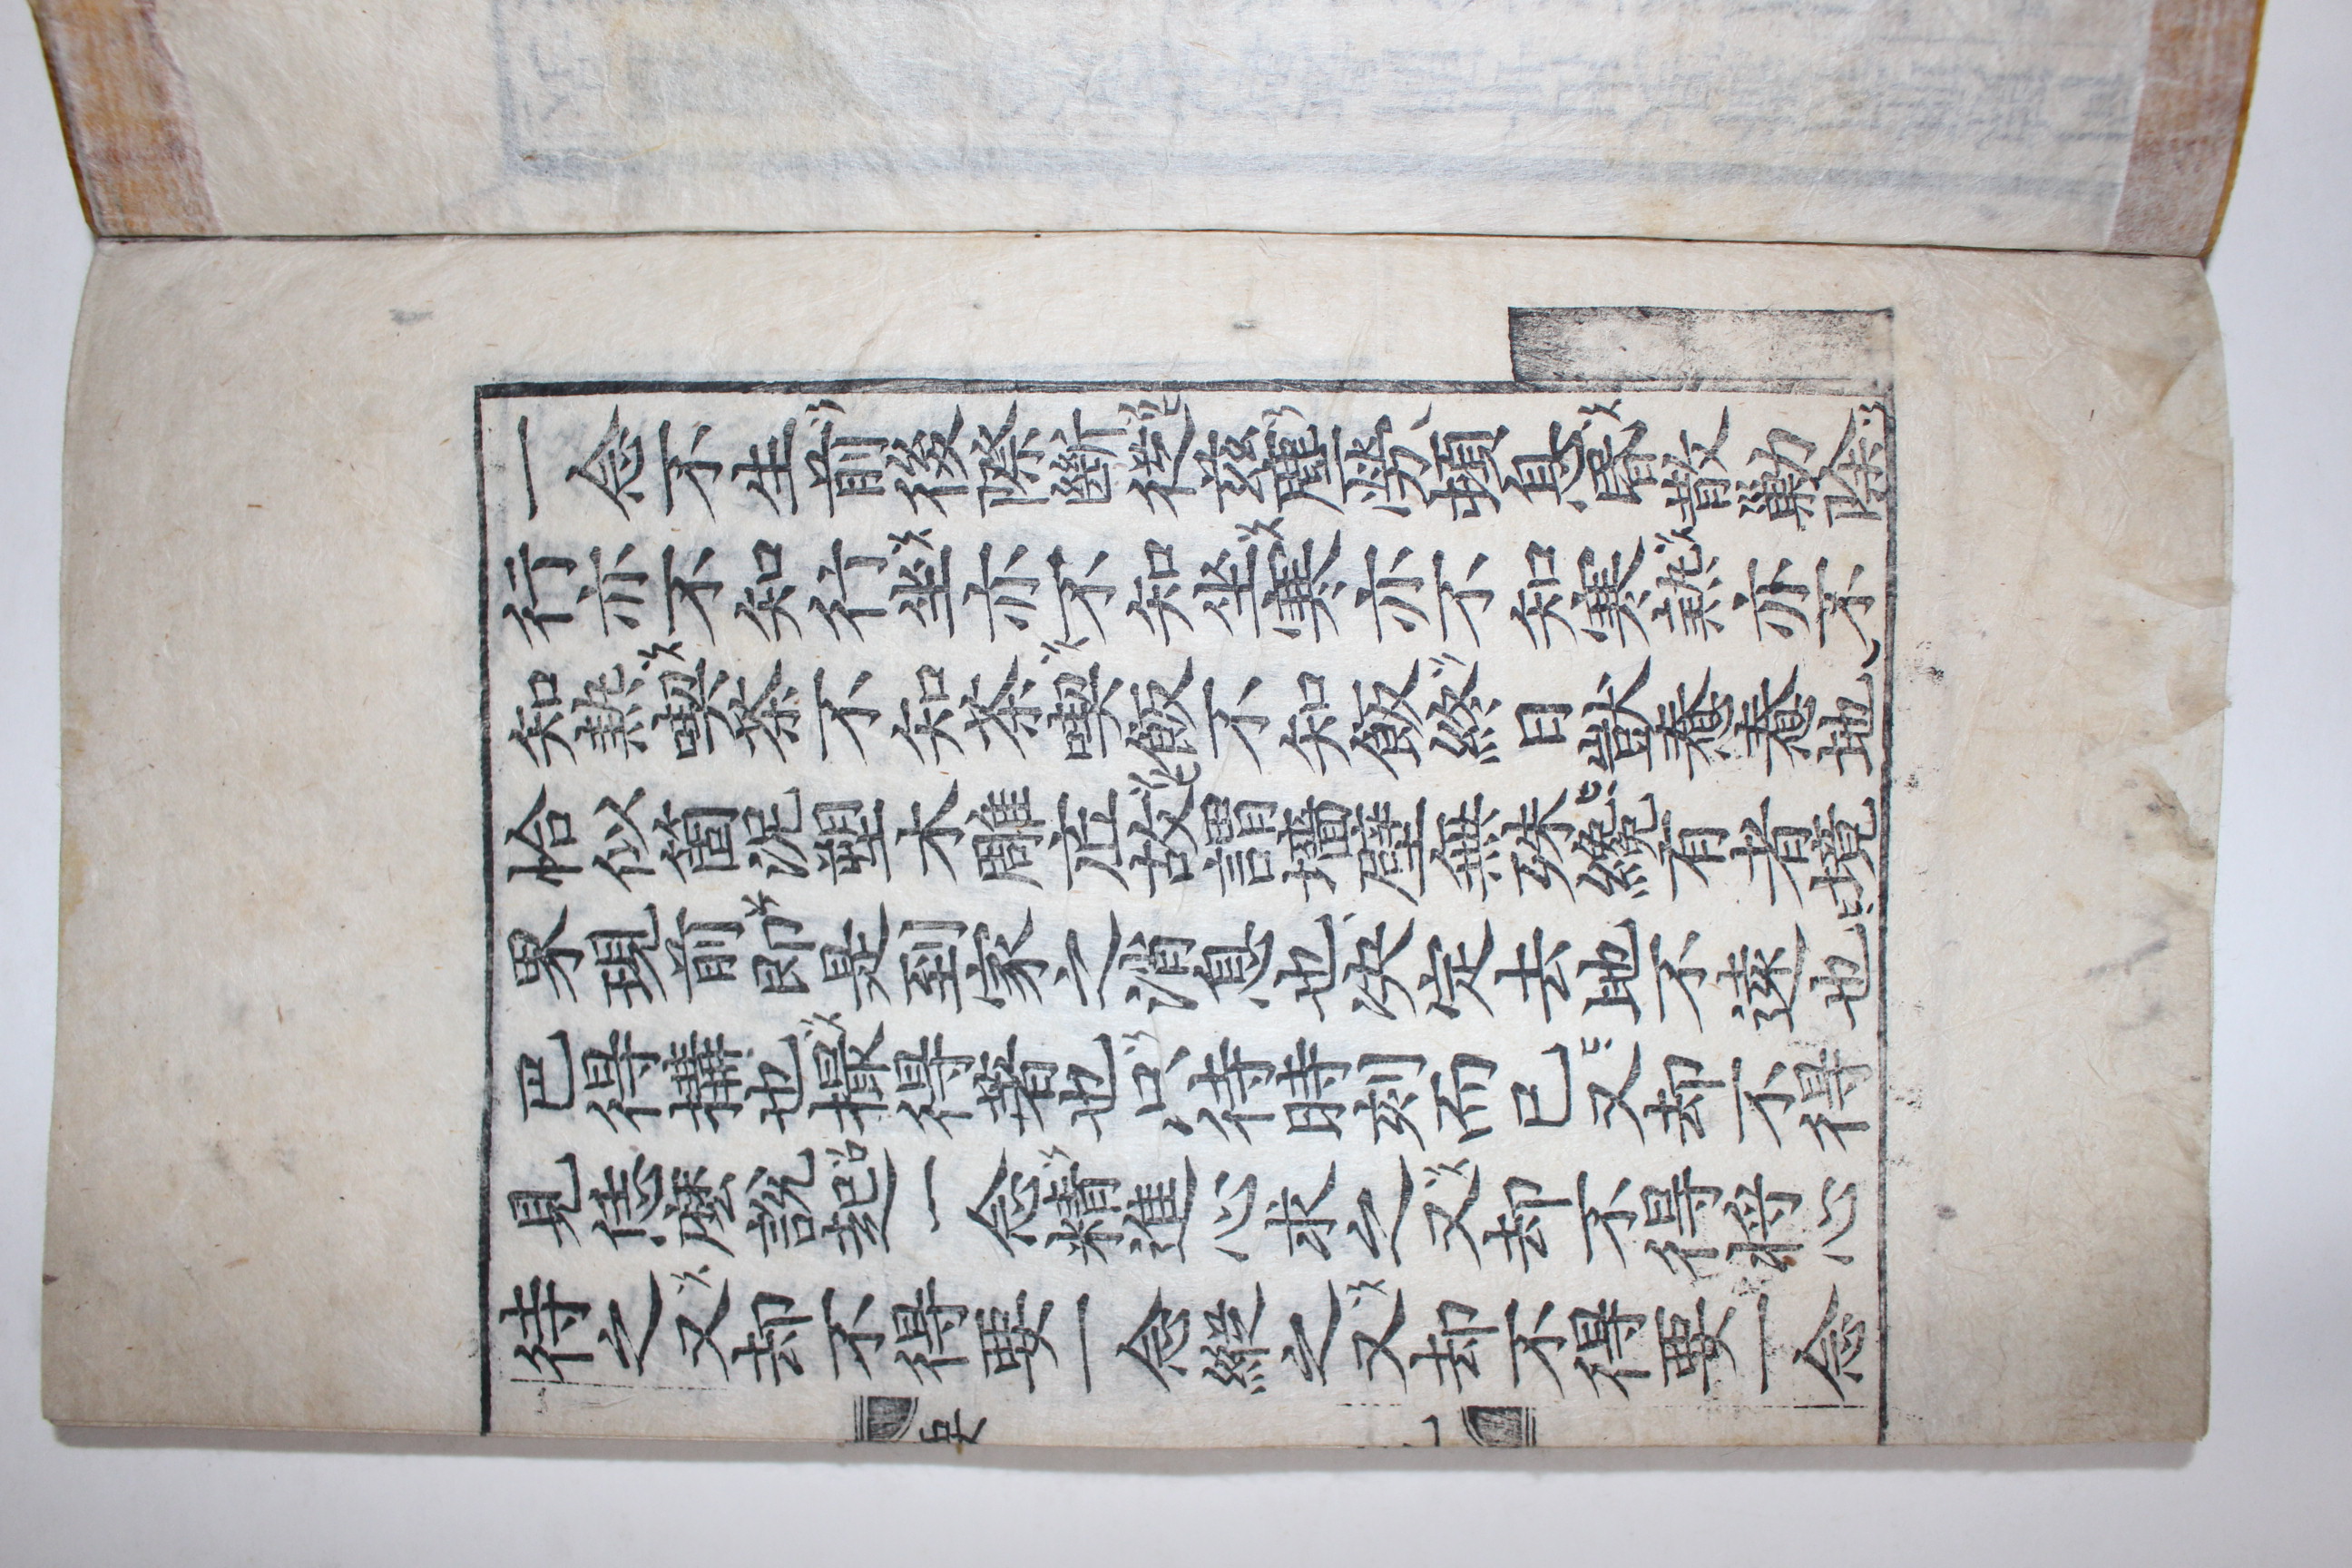 一念不生前後際斷從玆塵勞頓息昏散勦除
行亦不知行坐亦不知坐寒亦不知寒熱亦不
知熱喫茶不知茶喫飯不知飯終日獃憃憃地
恰似箇泥塑木雕底故謂墻壁無殊纔有者境
界現前即是到家之消息也决定去地不遠也
巴得搆也撮得着也只待時刻而已又却不得
見恁麽說起一念精進心求之又却不得將心
待之又却不得要一念縱之又却不得要一念